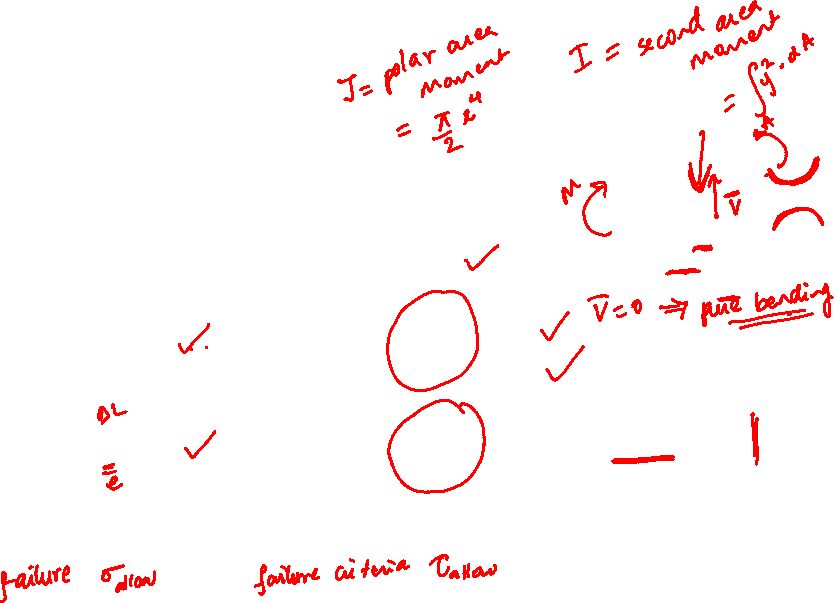 J = polar area
moment
= π/2 r⁴
I = second area
moment
= ∫_A y² . dA
M
V̅
V̅ = 0 ⇒ pure bending
DL
e
failure σ_allow
failure criteria τ_allow